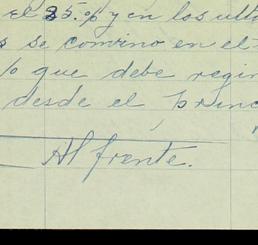 el 25.% y en los ulti
s se convino en el
lo que debe regir
desde el princ
Al frente.